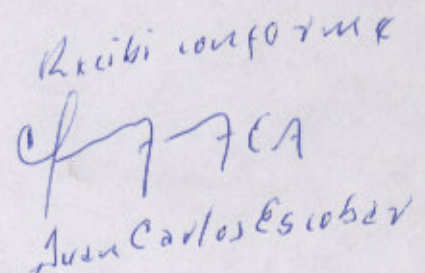 Recibi conforme
Juan Carlos Escobar